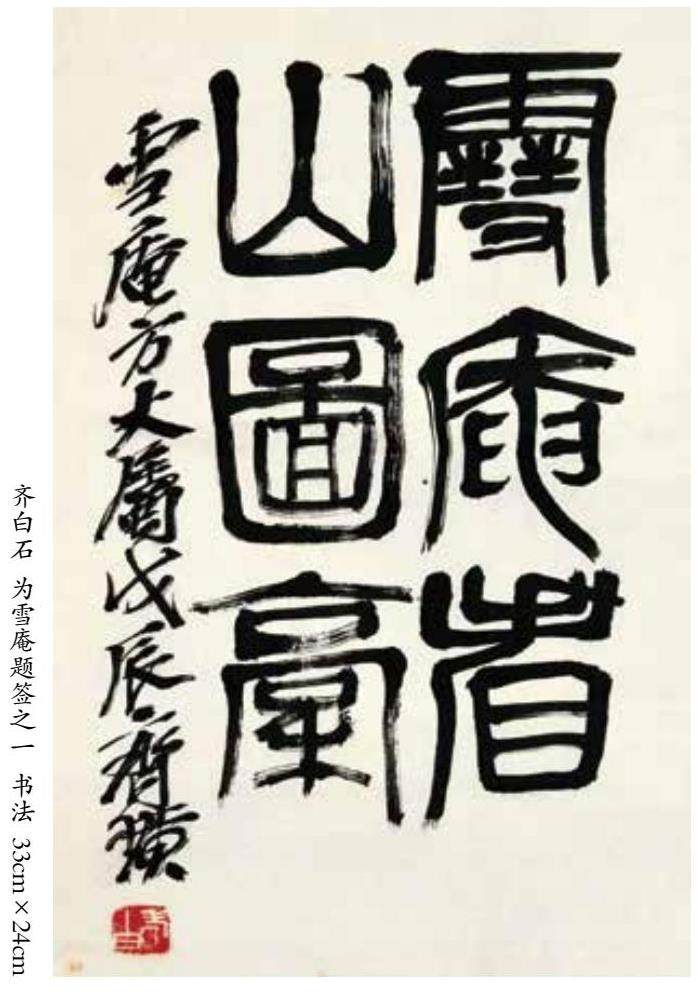 雪庵看
山圖稾
雪庵方大屬戊辰齊璜
齐白石 为雪庵题签之一 书法 33cm×24cm